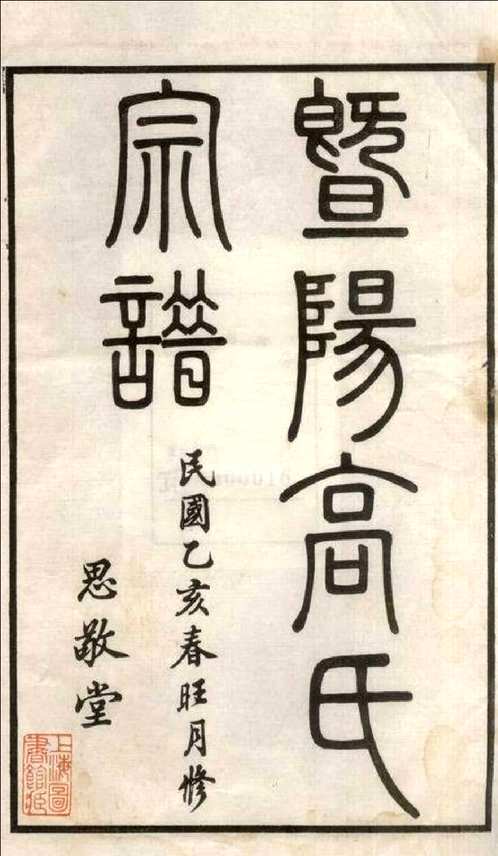 暨陽高氏
宗譜
民國乙亥春旺月修
思敬堂
上海圖
書館藏